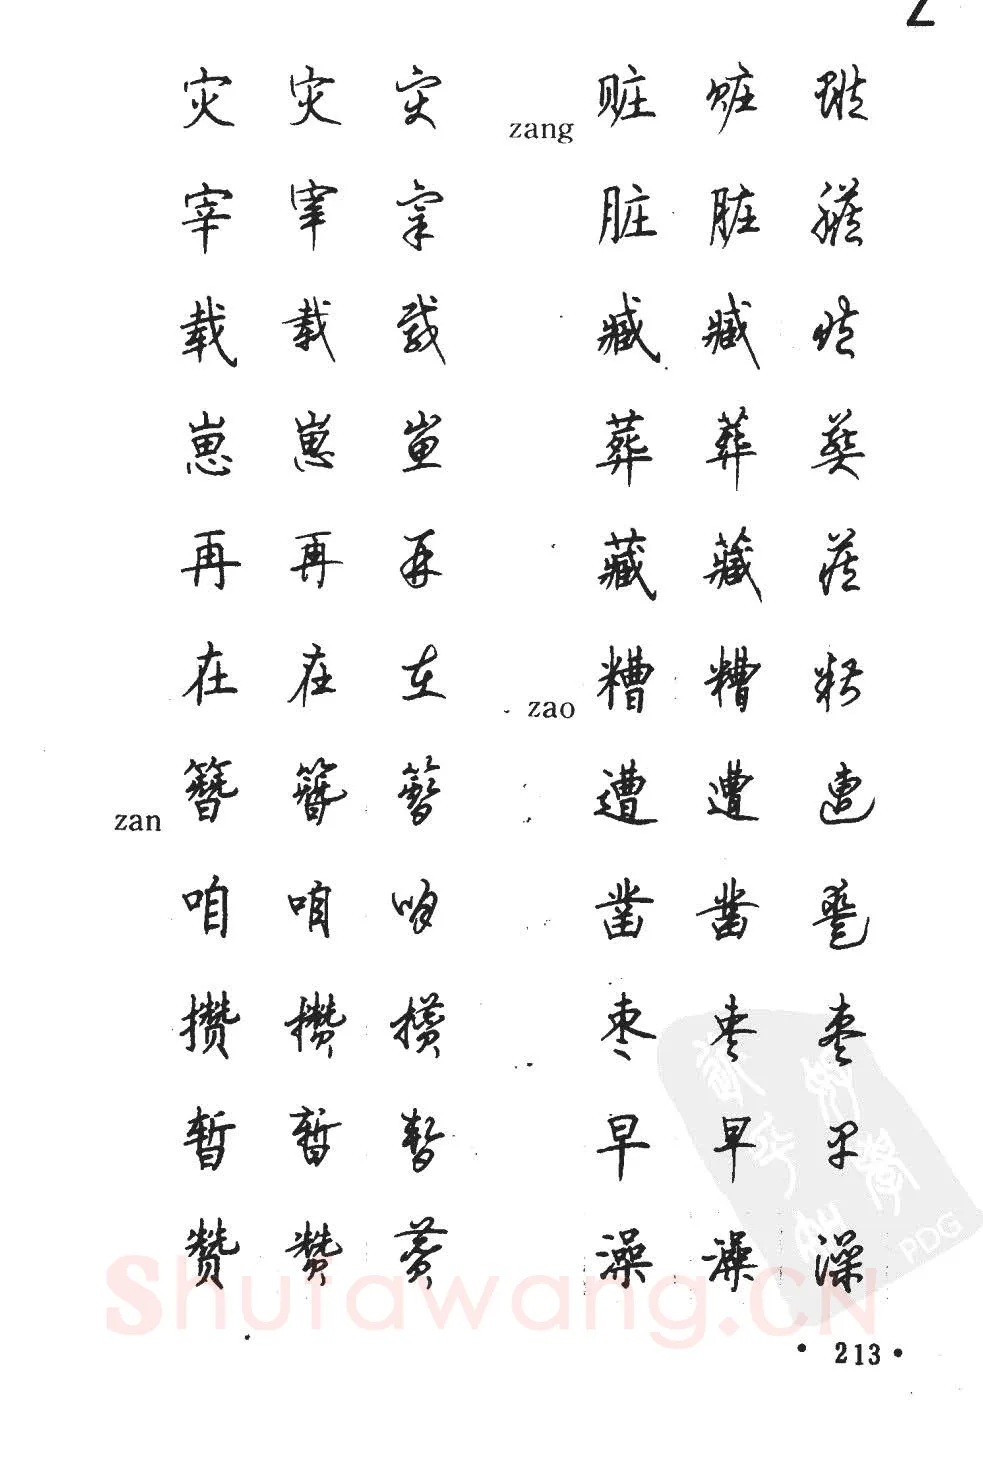 Z
灾 灾 灾
宰 宰 宰
载 载 载
崽 崽 崽
再 再 再
在 在 在
zan 簪 簪 簪
咱 咱 咱
攒 攒 攒
暂 暂 暂
赞 赞 赞
zang 赃 赃 赃
脏 脏 脏
臧 臧 臧
葬 葬 葬
藏 藏 藏
zao 糟 糟 糟
遭 遭 遭
凿 凿 凿
枣 枣 枣
早 早 早
澡 澡 澡
Shufawang.CN
PDG
• 213 •